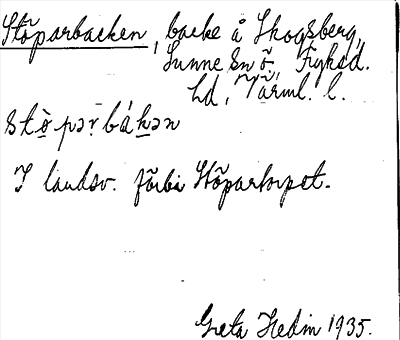 Stöparbacken, backe å Skogsberg,
Sunne Sn ö, Fryksd.
hd, Värml. l.
stò̱pər bákən
I landsv. förbi Stöpartorpet.
Greta Hedin 1935.